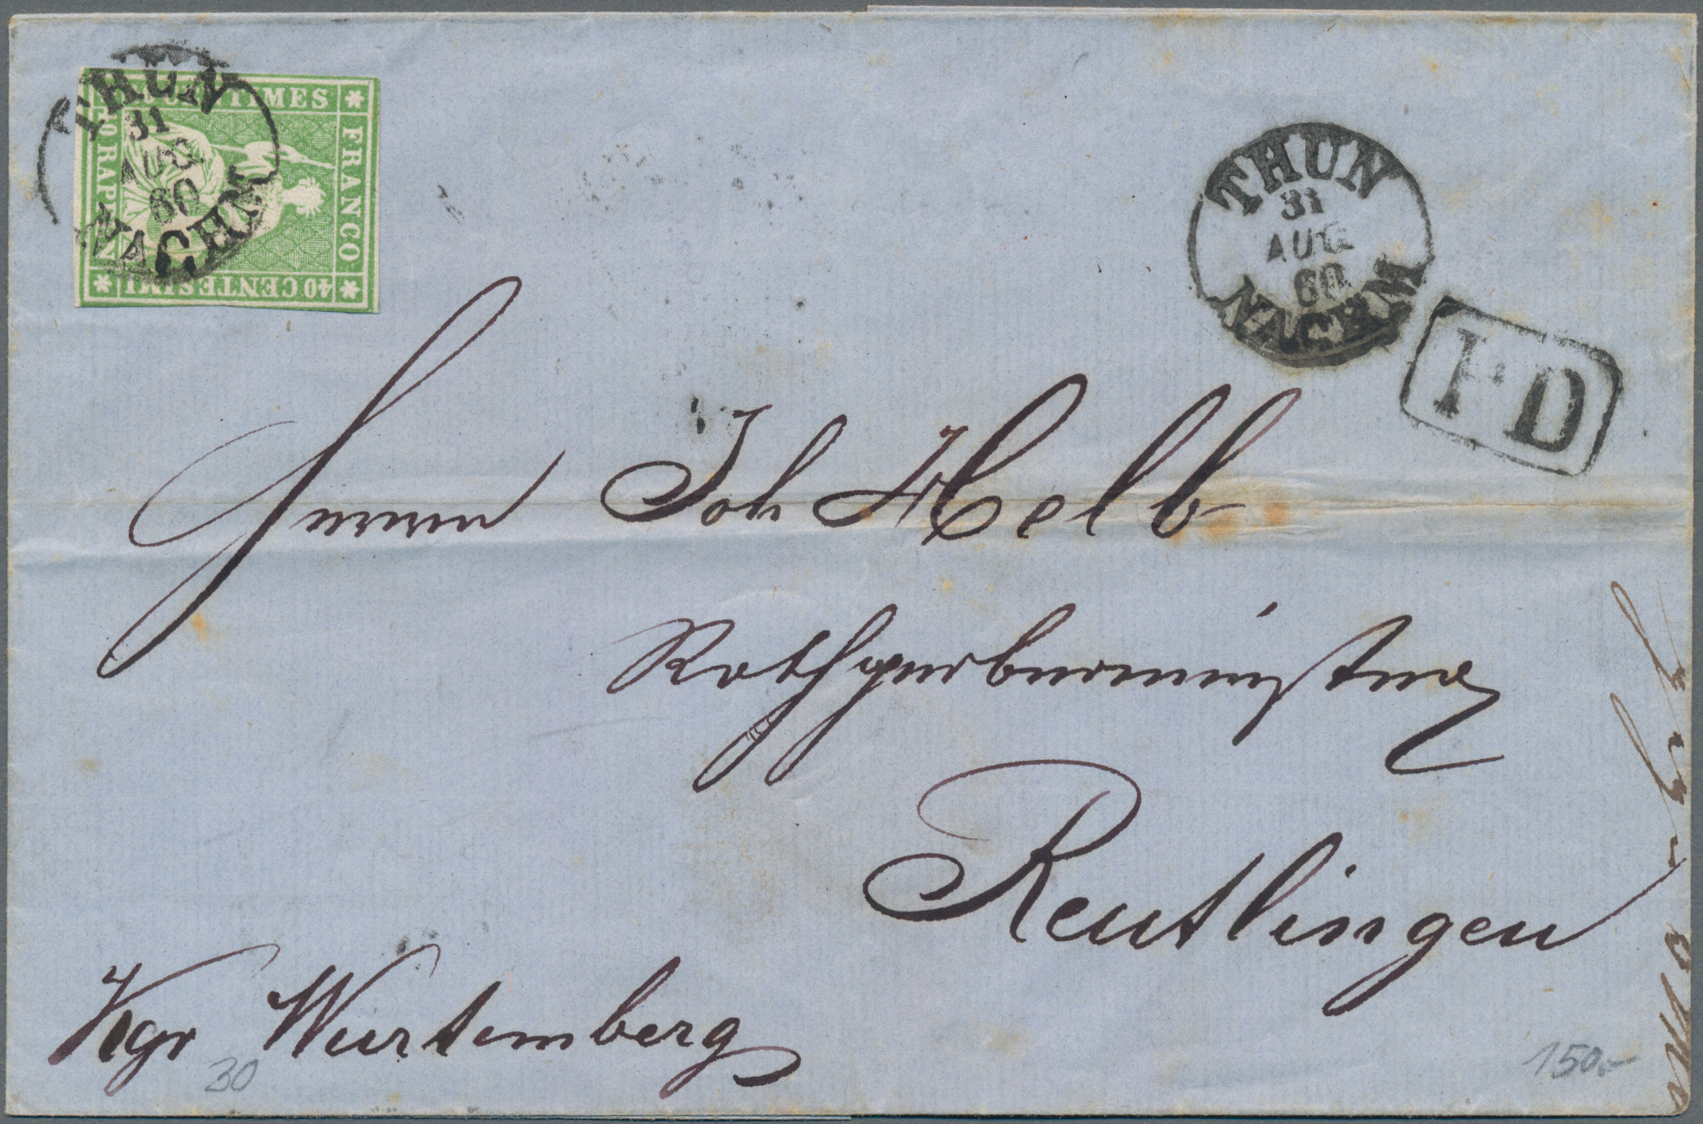 THUN
31
AUG
60
NACHM
CENTIMES
FRANCO
40 CENTESIMI
40 RAPPEN
THUN
31
AUG
60
NACHM
PD
Herrn Joh Helb
Rothgerbermeister
Reutlingen
Kgr Wurtemberg
30
150.-